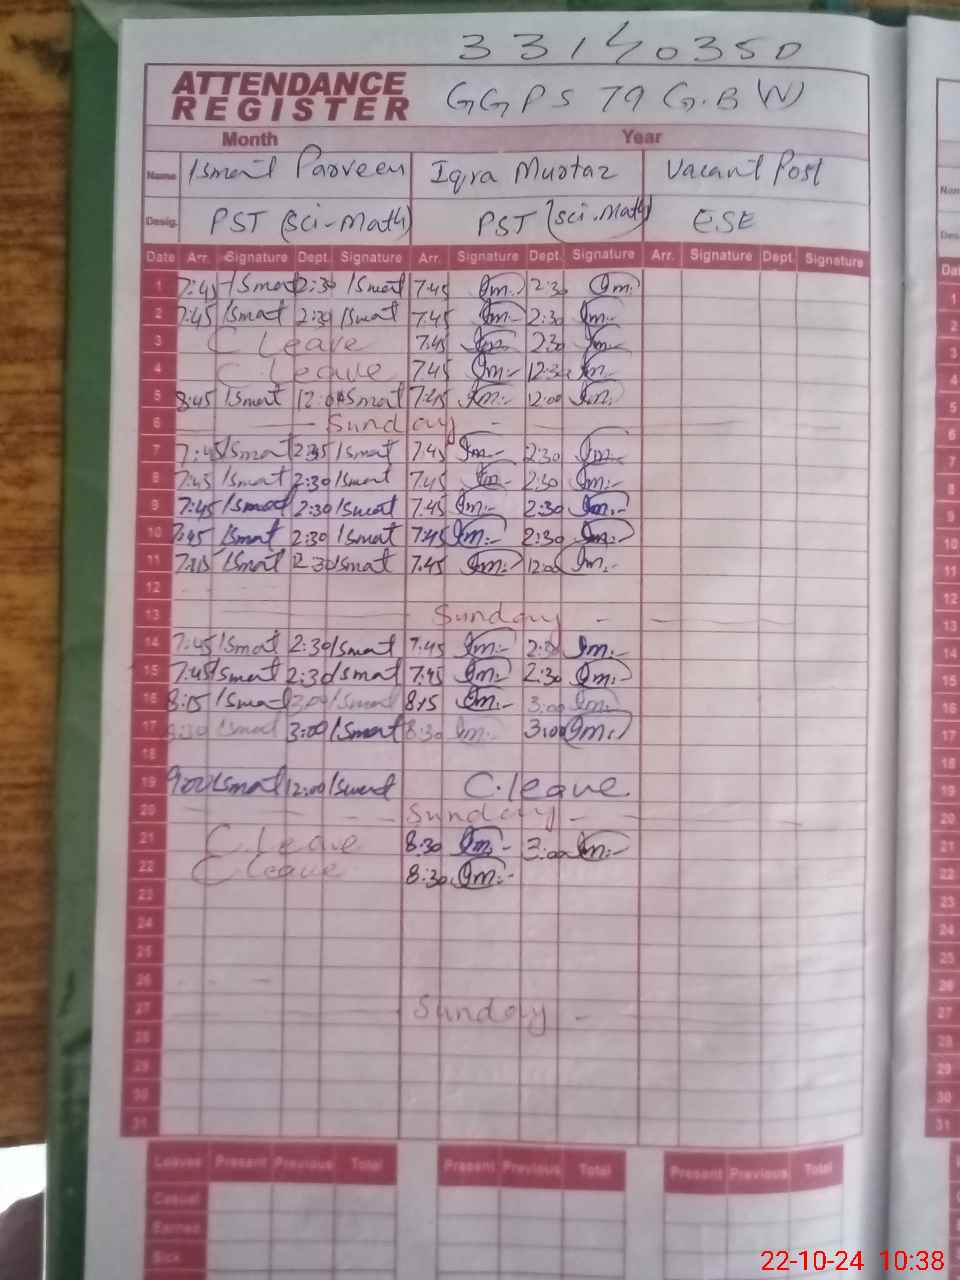 33140350
ATTENDANCE
REGISTER
GGPS 79 G.B W
Month Year
Name Ismat Parveen Iqra Murtaz Vacant Post
Desig. PST (Sci-Math) PST (Sci.Math) ESE
Date Arr. Signature Dept. Signature Arr. Signature Dept. Signature Arr. Signature Dept. Signature
1 7:45 Ismat 2:30 Ismat 7:45 Im. 2:30 Im.
2 7:45 Ismat 2:30 Ismat 7:45 Im. 2:30 Im.
3 C Leave 7:45 Im. 2:30 Im.
4 C. Leave 7:45 Im. 12:30 Im.
5 8:45 Ismat 12:00 Ismat 7:45 Im. 12:00 Im.
6 Sunday
7 7:45 Ismat 2:35 Ismat 7:45 Im. 2:30 Im.
8 7:45 Ismat 2:30 Ismat 7:45 Im. 2:30 Im.
9 7:45 Ismat 2:30 Ismat 7:45 Im. 2:30 Im.
10 7:45 Ismat 2:30 Ismat 7:45 Im. 2:30 Im.
11 Ismat 12:30 Ismat 7:45 Im. 12:00 Im.
12
13 Sunday
14 7:45 Ismat 2:30 Ismat 7:45 Im. Im.
15 7:45 Ismat 2:30 Ismat 7:45 Im. 2:30 Im.
16 8:15 Ismat 3:00 Ismat 8:15 Im. 3:00 Im.
17 8:30 Ismat 3:00 Ismat 8:30 Im. 3:00 Im.
18
19 9:00 Ismat 12:00 Ismat C.leave
20 Sunday
21 C. Leave 8:30 Im. 3:00 Im.
22 C Leave 8:30 Im.
23
24
25
26
27 Sunday
28
29
30
31
Leaves Present Previous Total Present Previous Total Present Previous Total
Casual
Earned
Sick
22-10-24 10:38